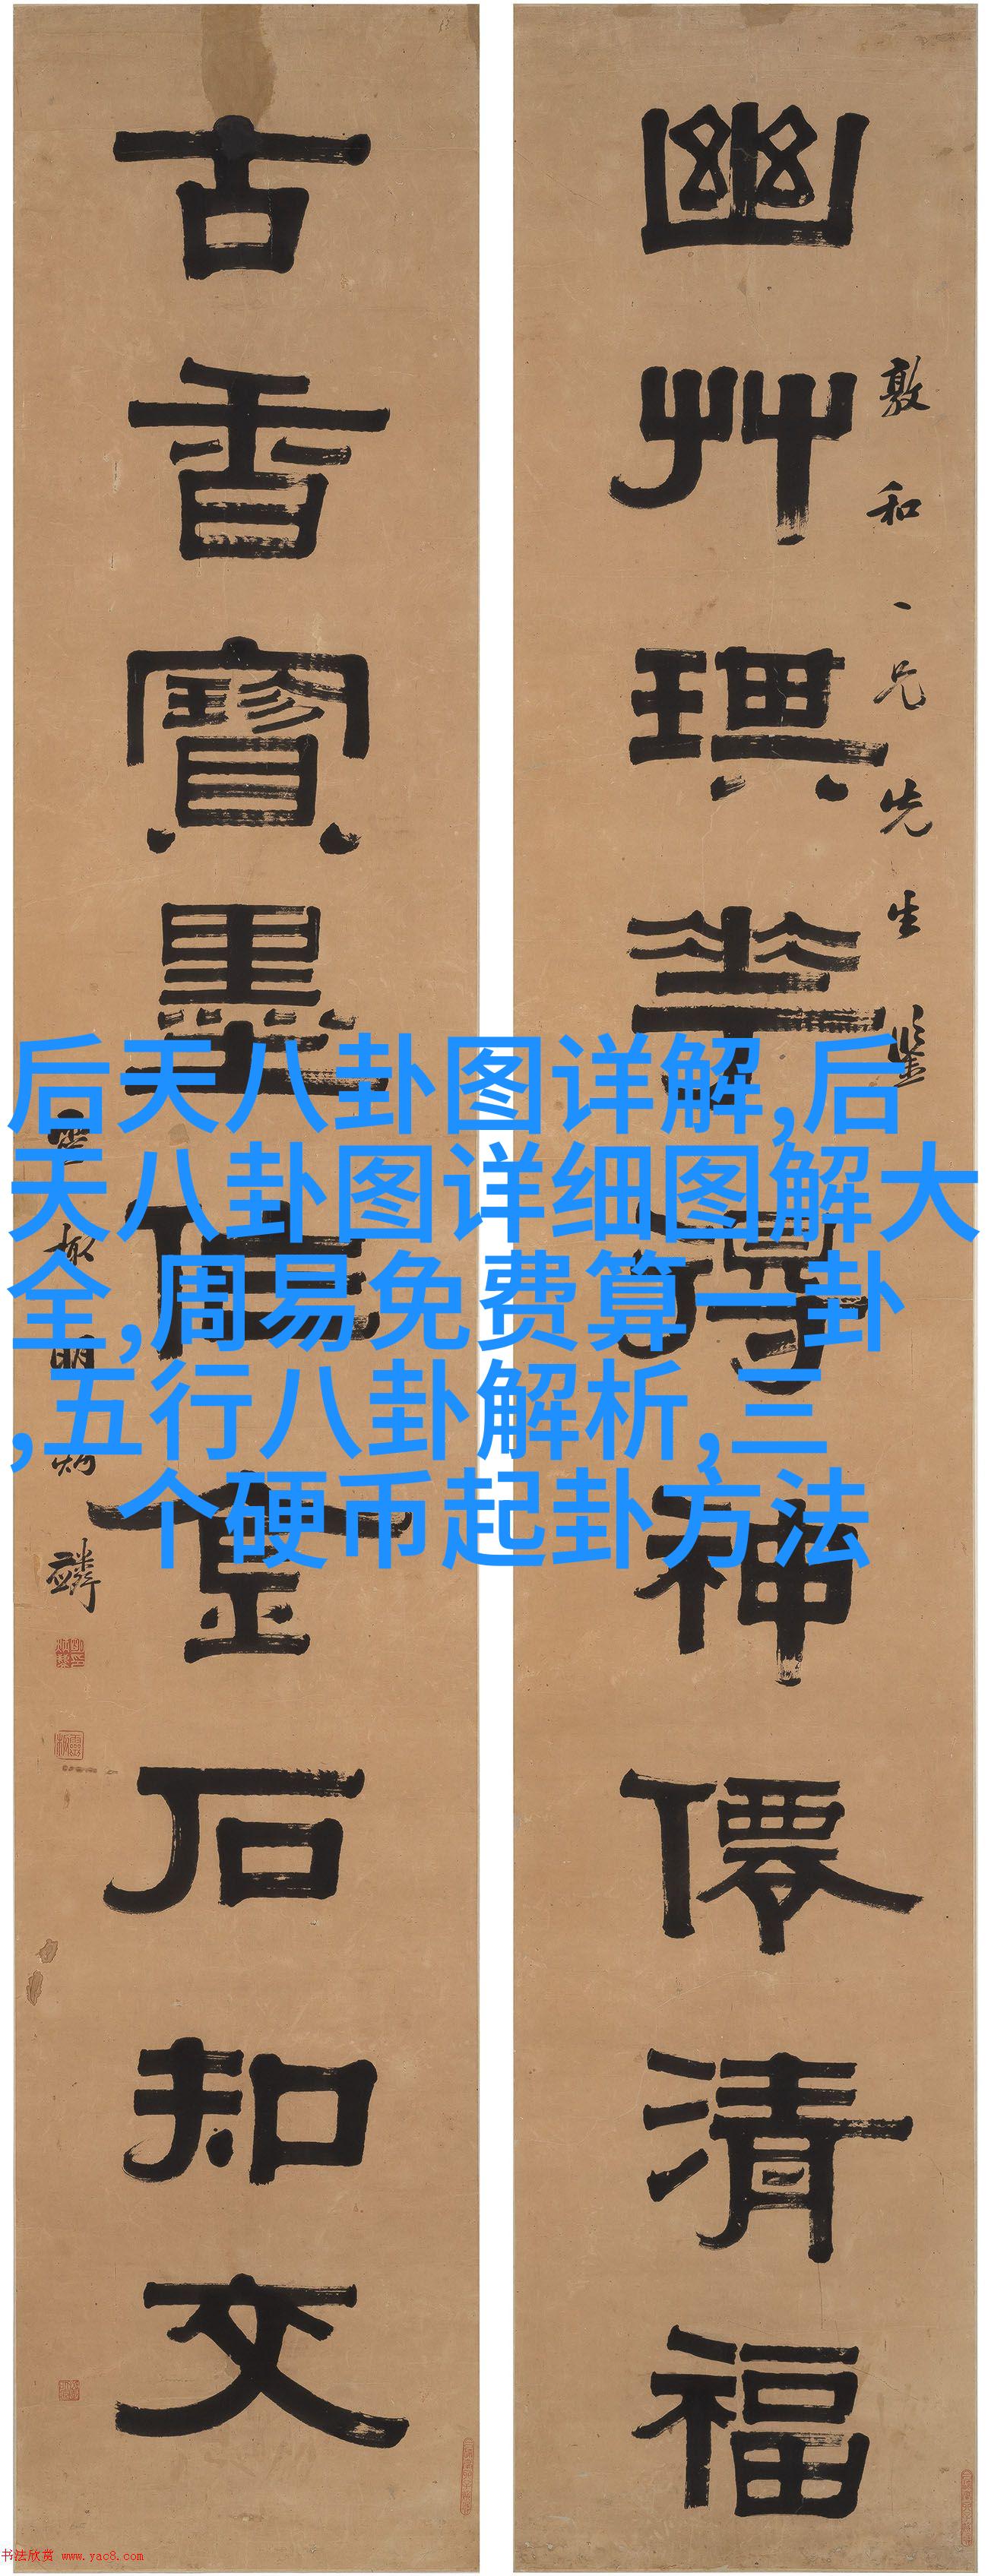 敦和一兄先生鑒
幽艸琪華得神僊清福
古香寶墨金石知文
明炳麟
后天八卦图详解,后
天八卦图详细图解大
全,周易免费算一卦
,五行八卦解析,三
个硬币起卦方法
书法欣赏 www.yac8.com